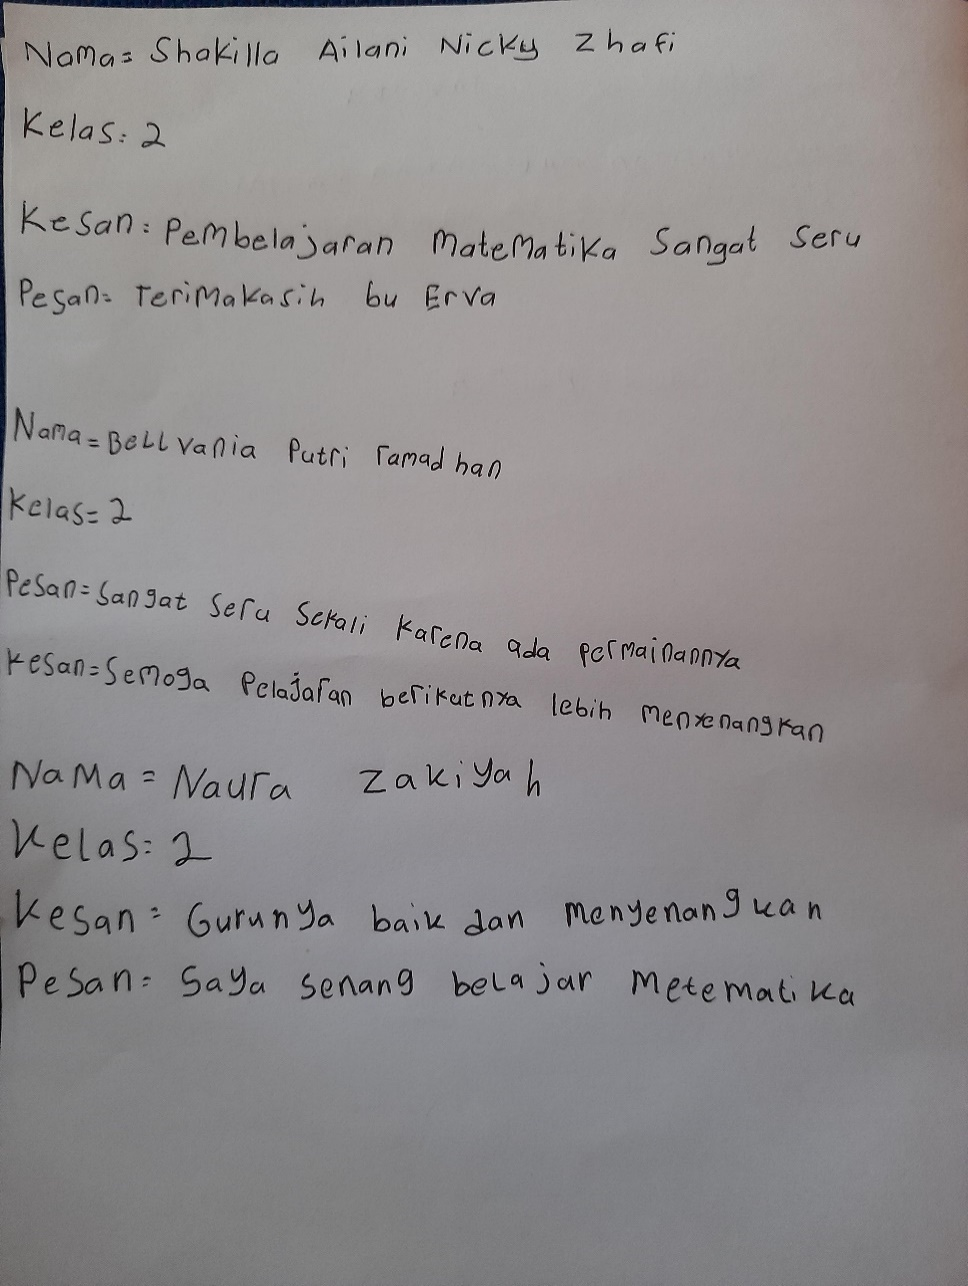 Nama = Shakilla Ailani Nicky Zhafi
Kelas : 2
Kesan : Pembelajaran Matematika Sangat Seru
Pesan = Terimakasih bu Erva
Nama = BeLLvania Putri ramadhan
Kelas = 2
Pesan = Sangat Seru Sekali Karena ada permainannya
Kesan = Semoga Pelajaran berikutnya lebih menyenangkan
NaMa = Naura Zakiyah
Kelas = 2
Kesan = Gurunya baik dan menyenangkan
Pesan = Saya senang belajar Metematika